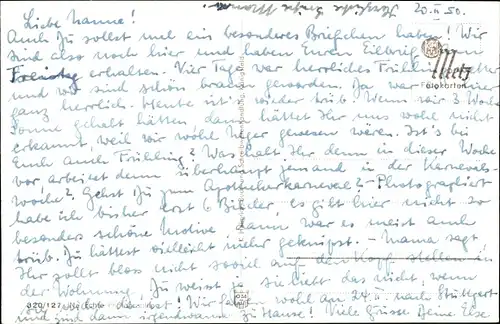 20. II 50.
Herzliche Grüße Mama
Liebe Hanne!
Auch Du sollst mal ein besonderes Briefchen haben! Wir
sind also noch hier und haben Euren Eilbrief am
Freitag erhalten. Vier Tage war herrliches Frühlingswetter
und wir sind schön braun geworden. Ja war
ganz herrlich. Heute ist's wieder trüb. Wenn wir 3 Woch
Sonne gehabt hätten, dann hättet Ihr uns wohl nicht
erkannt, weil wir wohl Neger gewesen wären. Ist's bei
Euch auch Frühling? Was habt Ihr denn in dieser Woche
vor, arbeitet denn überhaupt jemand in der Karnevals-
woche? Gehst Du zum Apothekerkarneval? - Photographiert
habe ich bisher erst 6 Bilder, es gibt hier nicht so
besonders schöne Motive, dann war es meist auch
trüb. Du hättest vielleicht mehr geknipst. - Mama sagt,
Ihr sollt bloss nicht soviel auf den Kopf stellen in
der Wohnung. Du weisst, sie liebt das nicht, wenn
sie nicht da ist! Wir fahren wohl am 24. nach Stuttgart
und sind dann irgendwann zu Hause! Viele Grüsse Deine Else
Metz
Fotokarten
320/127